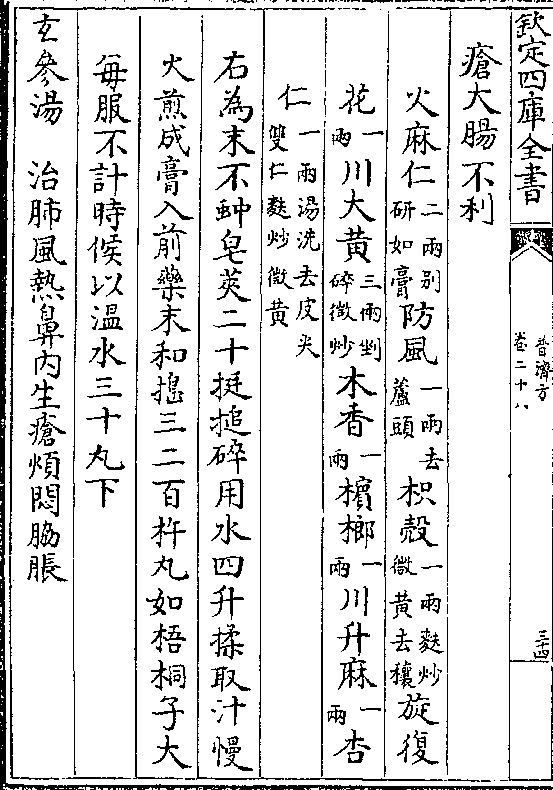 欽定四庫全書
普濟方
卷二十八
三十四
瘡大腸不利
火麻仁二兩别研如膏防風一兩去蘆頭枳殼一兩麩炒微黄去穰旋復
花一兩川大黄三兩剉碎微炒木香一兩檳榔一兩川升麻一兩杏
仁一兩湯洗去皮尖雙仁麩炒微黄
右為末不蚛皂莢二十挺搥碎用水四升揉取汁慢
火煎成膏入前藥末和搗三二百杵丸如梧桐子大
每服不計時候以温水三十丸下
玄參湯　治肺風熱鼻内生瘡煩悶胸脹